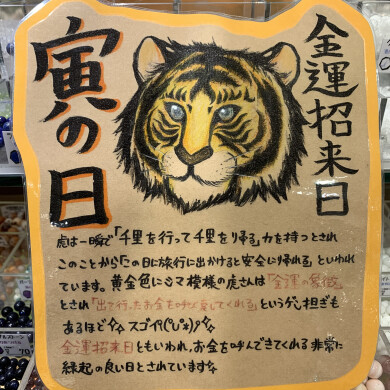 金運招来日
寅の日
虎は一瞬で「千里を行って千里を帰る」力を持つとされ
このことから「この日に旅行に出かけると安全に帰れる」といわれ
ています。黄金色にシマ模様の虎さんは「金運の象徴」
とされ「出て行ったお金を呼び戻してくれる」というゲン担ぎも
あるほど スゴイ
金運招来日ともいわれ、お金を呼んできてくれる非常に
縁起の良い日とされています